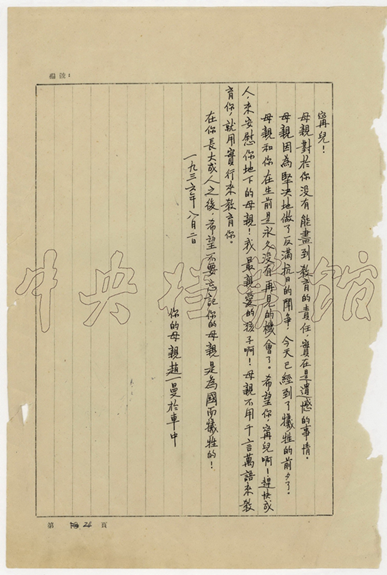 寗兒！
母親對於你没有能盡到教育的責任，實在是遺憾的事情。
母親因為堅决地做了反滿抗日的鬪爭，今天已經到了犠牲的前夕了。
母親和你在生前是永久没有再見的機會了。希望你，寗兒啊！趕快成
人，来安慰你地下的母親！我最親愛的孩子啊！母親不用千言萬語来教
育你，就用實行来教育你。
在你長大成人之後，希望不要忘記你的母親是為國而犠牲的！
一九三六年八月二日
你的母親趙一曼於車中
中央档案館
第
頁